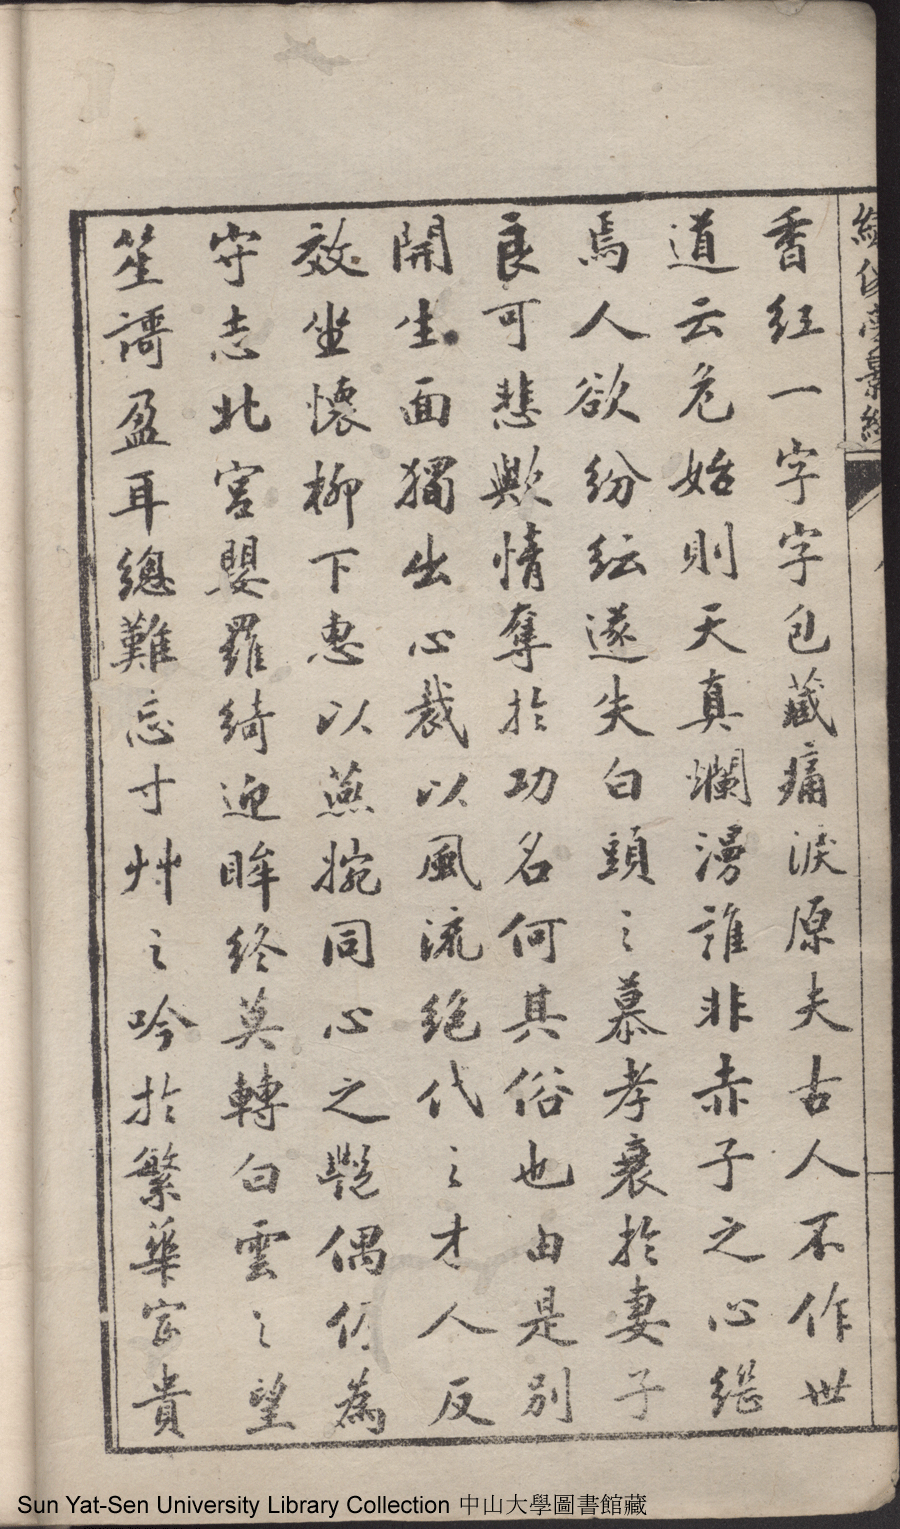 香紅一字字包藏痛淚原夫古人不作世
道云危始則天真爛漫誰非赤子之心繼
焉人欲紛紜遂失白頭之慕孝衰於妻子
良可悲歟情奪於功名何其俗也由是別
開生面獨出心裁以風流絕代之才人反
效坐懷柳下惠以燕婉同心之艷偶仍為
守志北宮嬰羅綺迎眸終莫轉白雲之望
笙謌盈耳總難忘寸艸之吟於繁華富貴
Sun Yat-Sen University Library Collection 中山大學圖書館藏